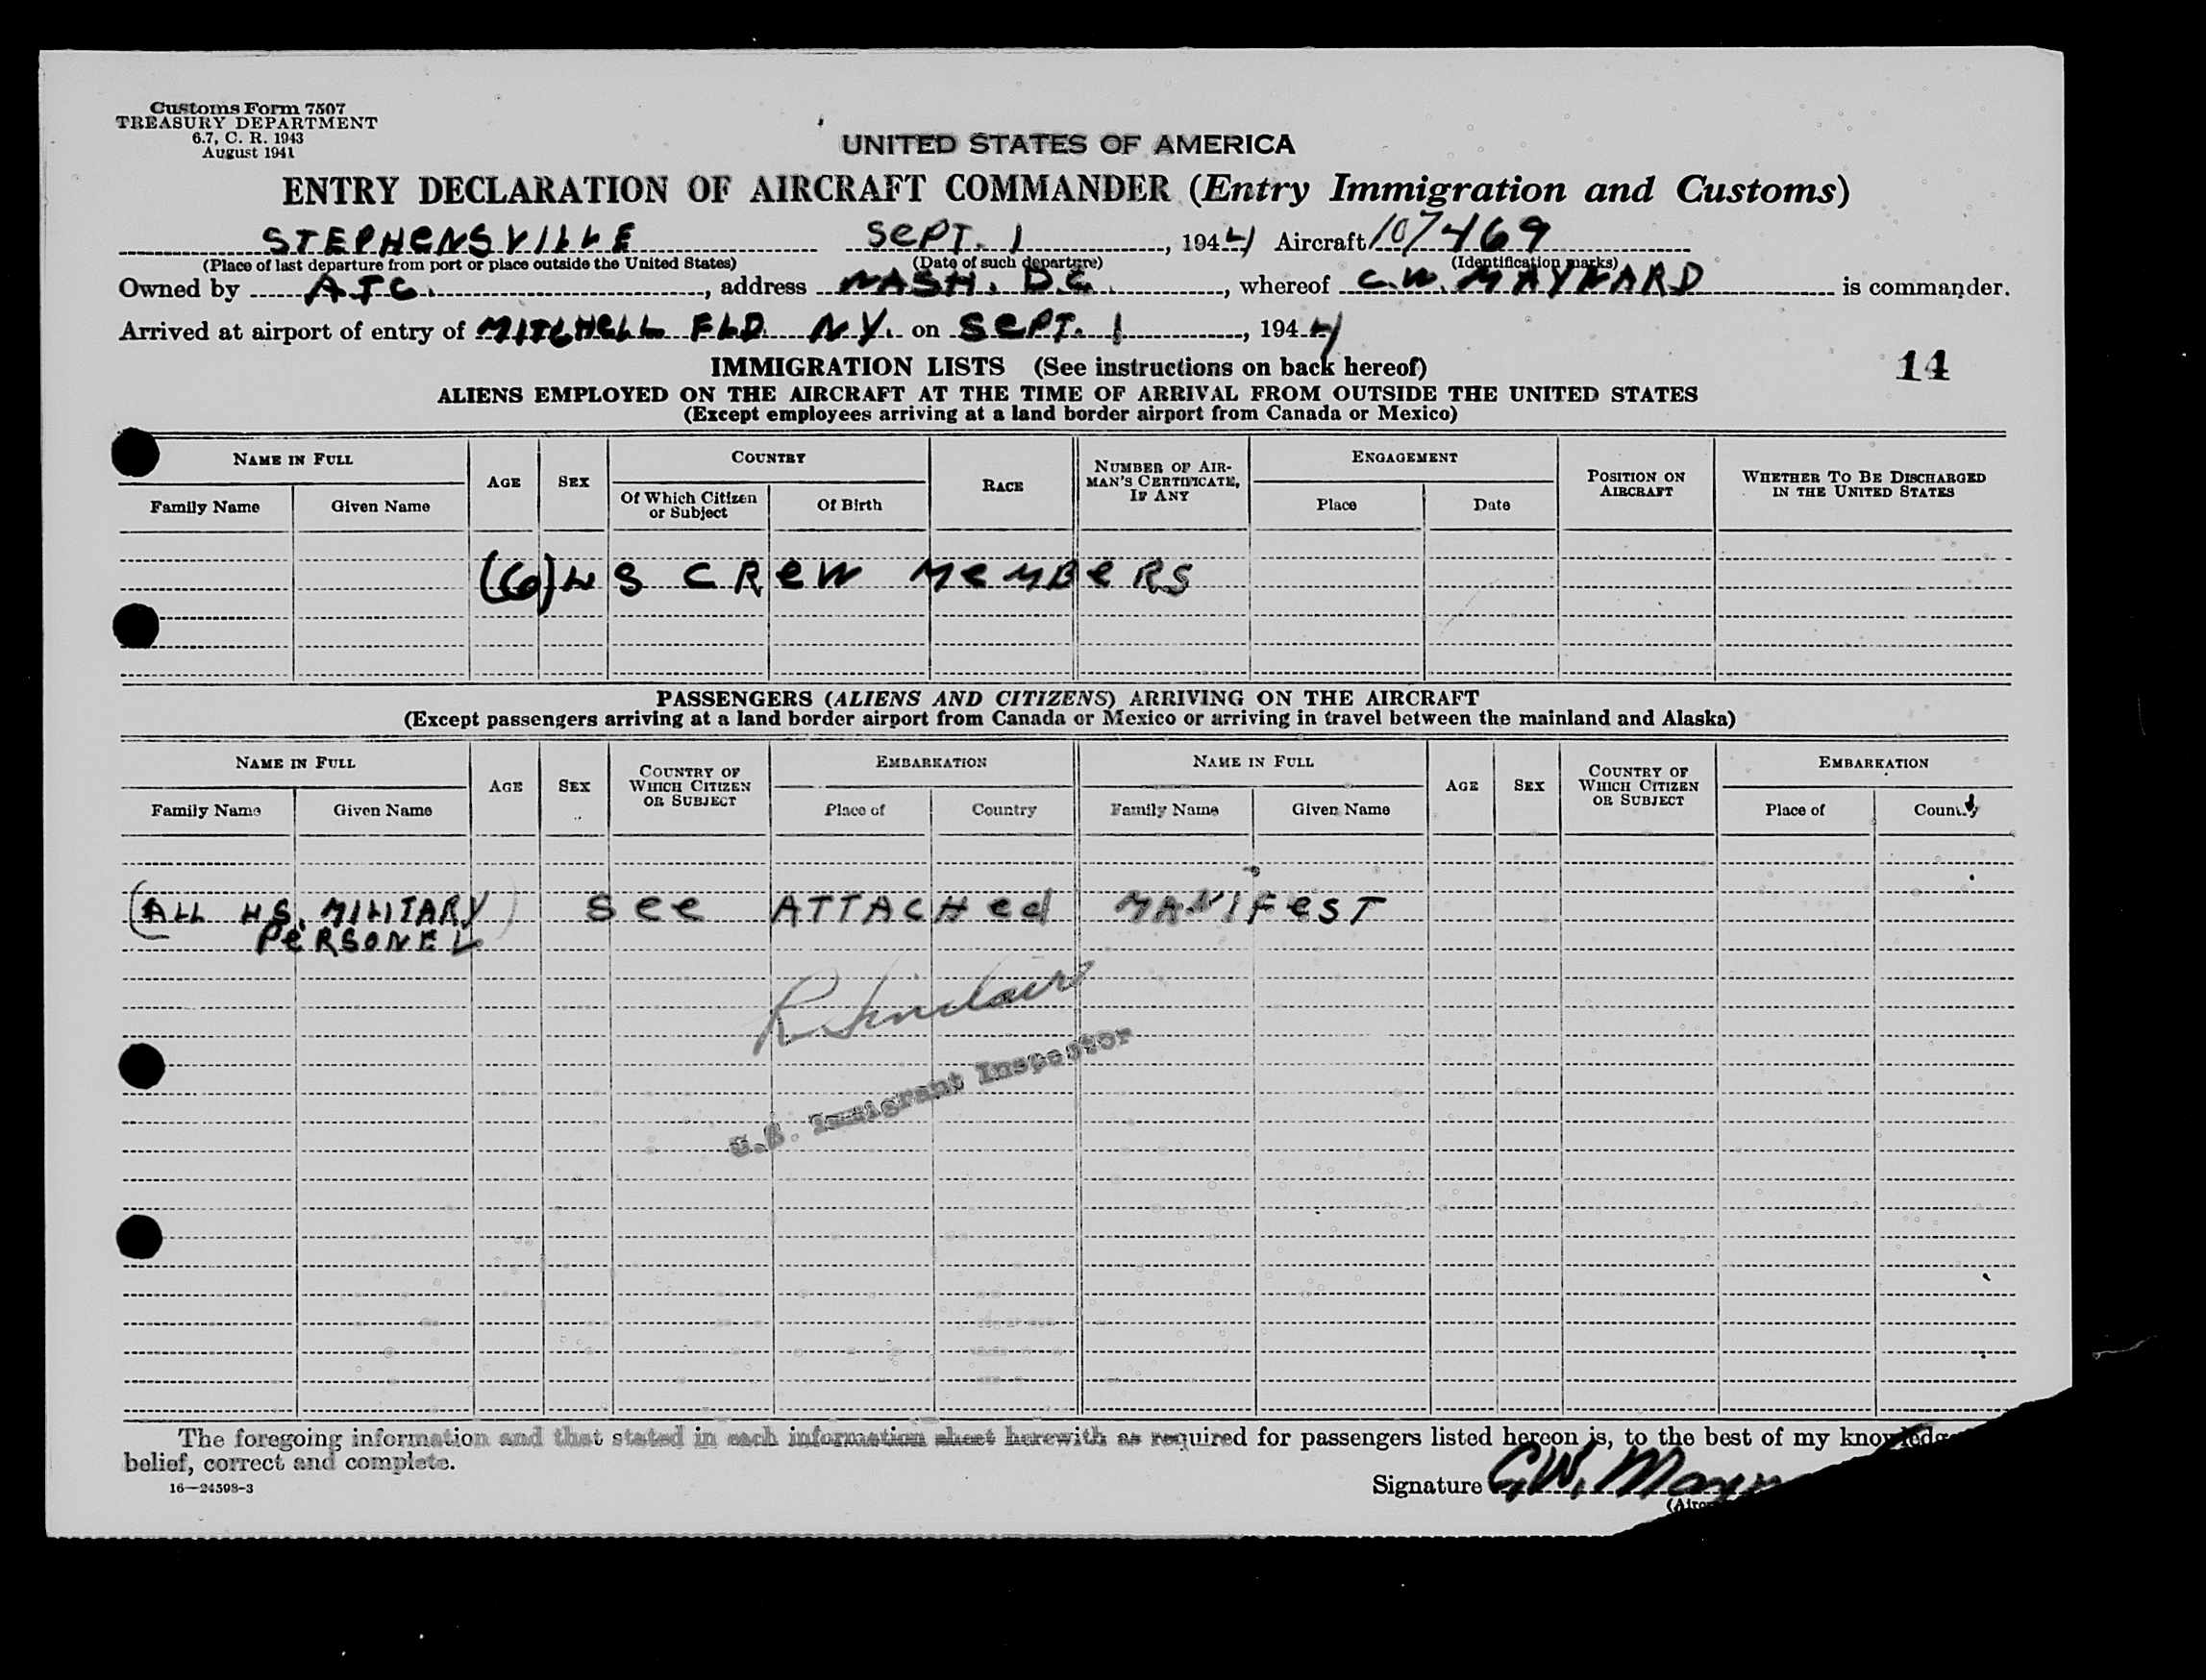 Customs Form 7507
TREASURY DEPARTMENT
6.7, C. R. 1943
August 1941
UNITED STATES OF AMERICA
ENTRY DECLARATION OF AIRCRAFT COMMANDER (Entry Immigration and Customs)
STEPHENSVILLE SEPT. 1, 1944 Aircraft 107469
(Place of last departure from port or place outside the United States) (Date of such departure) (Identification marks)
Owned by A.T.C., address WASH. D.C., whereof C.W. MAYNARD is commander.
Arrived at airport of entry of MITCHELL FLD N.Y. on SEPT. 1, 1944
IMMIGRATION LISTS (See instructions on back hereof)
14
ALIENS EMPLOYED ON THE AIRCRAFT AT THE TIME OF ARRIVAL FROM OUTSIDE THE UNITED STATES
(Except employees arriving at a land border airport from Canada or Mexico)
NAME IN FULL AGE SEX COUNTRY RACE NUMBER OF AIRMAN'S CERTIFICATE, IF ANY ENGAGEMENT POSITION ON AIRCRAFT WHETHER TO BE DISCHARGED IN THE UNITED STATES
Family Name Given Name Of Which Citizen or Subject Of Birth Place Date
(6) US CREW MEMBERS
PASSENGERS (ALIENS AND CITIZENS) ARRIVING ON THE AIRCRAFT
(Except passengers arriving at a land border airport from Canada or Mexico or arriving in travel between the mainland and Alaska)
NAME IN FULL AGE SEX COUNTRY OF WHICH CITIZEN OR SUBJECT EMBARKATION NAME IN FULL AGE SEX COUNTRY OF WHICH CITIZEN OR SUBJECT EMBARKATION
Family Name Given Name Place of Country Family Name Given Name Place of Country
(ALL U.S. MILITARY) SEE ATTACHED MANIFEST
PERSONEL
R Sinclair
U.S. Immigrant Inspector
The foregoing information and that stated in each information sheet herewith as required for passengers listed hereon is, to the best of my knowledge
belief, correct and complete.
16—24598-3
Signature C.W. Mayn
(Airc